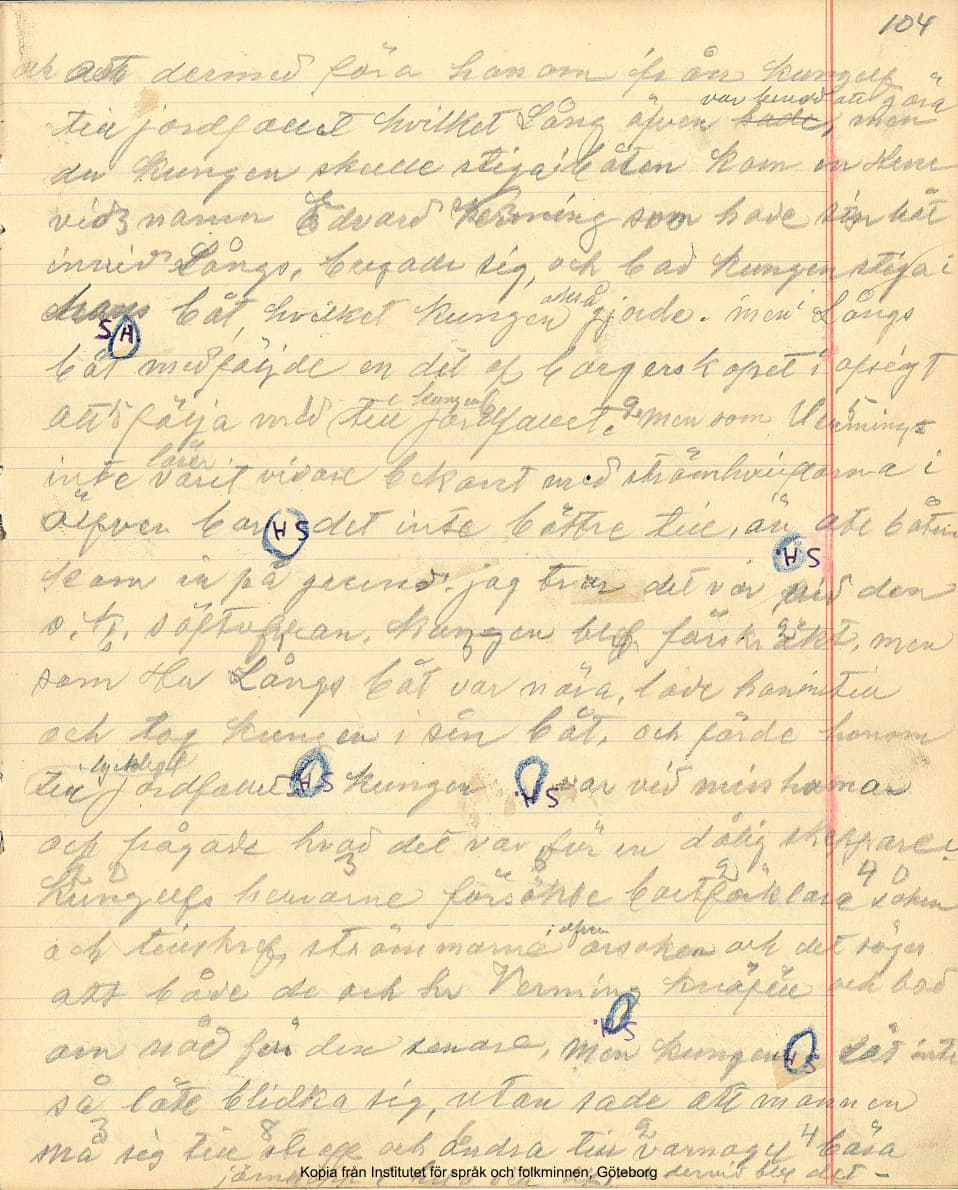 104
och att dermed föra honom från Kungelf
var beredd att göra
till jordfallet hvilket Lång äfven sade, men
du kungen skulle stiga i båten kom en Herr
vid namn Edvard Verming som hade sin båt
invid Långs, bugade sig, och bad kungen stiga i
också
hans båt, hvilket kungen gjorde. men i Långs
S H
båt medföljde en del af borgerskapet i afsigt
kungen
att följa med till jordfallet. men som Vermings
lärer
inte varit vidare bekant med strömhvirflarna i
älfven bar det inte bättre till, än att båten
H S
S H.
kom in på grund. jag tror det var vid den
s. k. kungen blef förskräkt, men
som Hr Långs båt var nära, lade han in till
och tog kungen i sin båt, och förde honom
lyckligt
till jordfallet kungen var vid miss humor
H S
H. S
och frågade hvad det var för en dålig skeppare!
Kungelfs herrarne försökte bortförklara saken
i elfven
och tillskref strömmarne orsaken och det säges
att både de och hr Verming knäföll och bad
S H.
om nåd för den senare, men kungen lät inte
H S
så lätt blidka sig, utan sade att mannen
må sig till straff och androm till varnagel bära
det –
Kopia från Institutet för språk och folkminnen, Göteborg